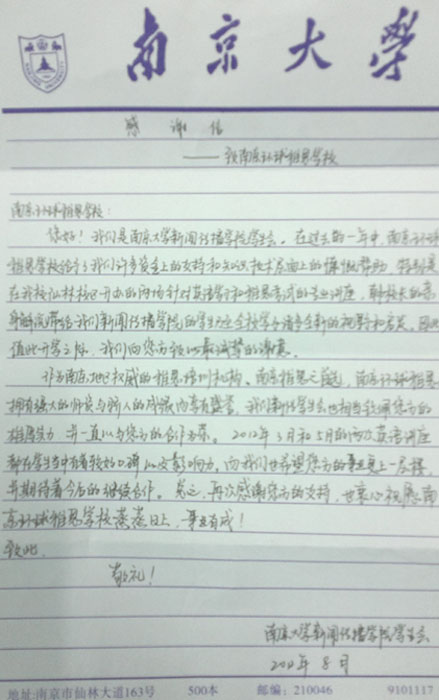 南京大學
感谢信
——致南京环球雅思学校
南京环球雅思学校：
您好！我们是南京大学新闻传播学院学生会。在过去的一年中，南京环球
雅思学校给予了我们许多资金上的支持和知识技术层面上的慷慨帮助，特别是
在我校仙林校区开办的两场针对英语学习和雅思考试的专业讲座，
身临院带给我们新闻传播学院的学生乃至全校学子诸多全新的视界和启发。
值此开学之际，我们向您方致以最诚挚的谢意。
作为南京地区权威的雅思培训机构、南京雅思之首选，南京环球雅思
拥有强大的师资与骄人的成绩，享有盛誉。我们新传学生会也相当钦佩您方的
雅厚实力，并一直以与您方的合作为荣。2012年3月和5月的两次英语讲座
都在学生当中有着较好口碑以及影响力，而我们也希望您方的事业更上一层楼，
并期待着今后的继续合作。总之，再次感谢您方的支持，也衷心祝愿南
京环球雅思学校蒸蒸日上，事业有成！
致此
敬礼！
南京大学新闻传播学院学生会
2012年8月
地址:南京市仙林大道163号 500本 邮编：210046 9101117